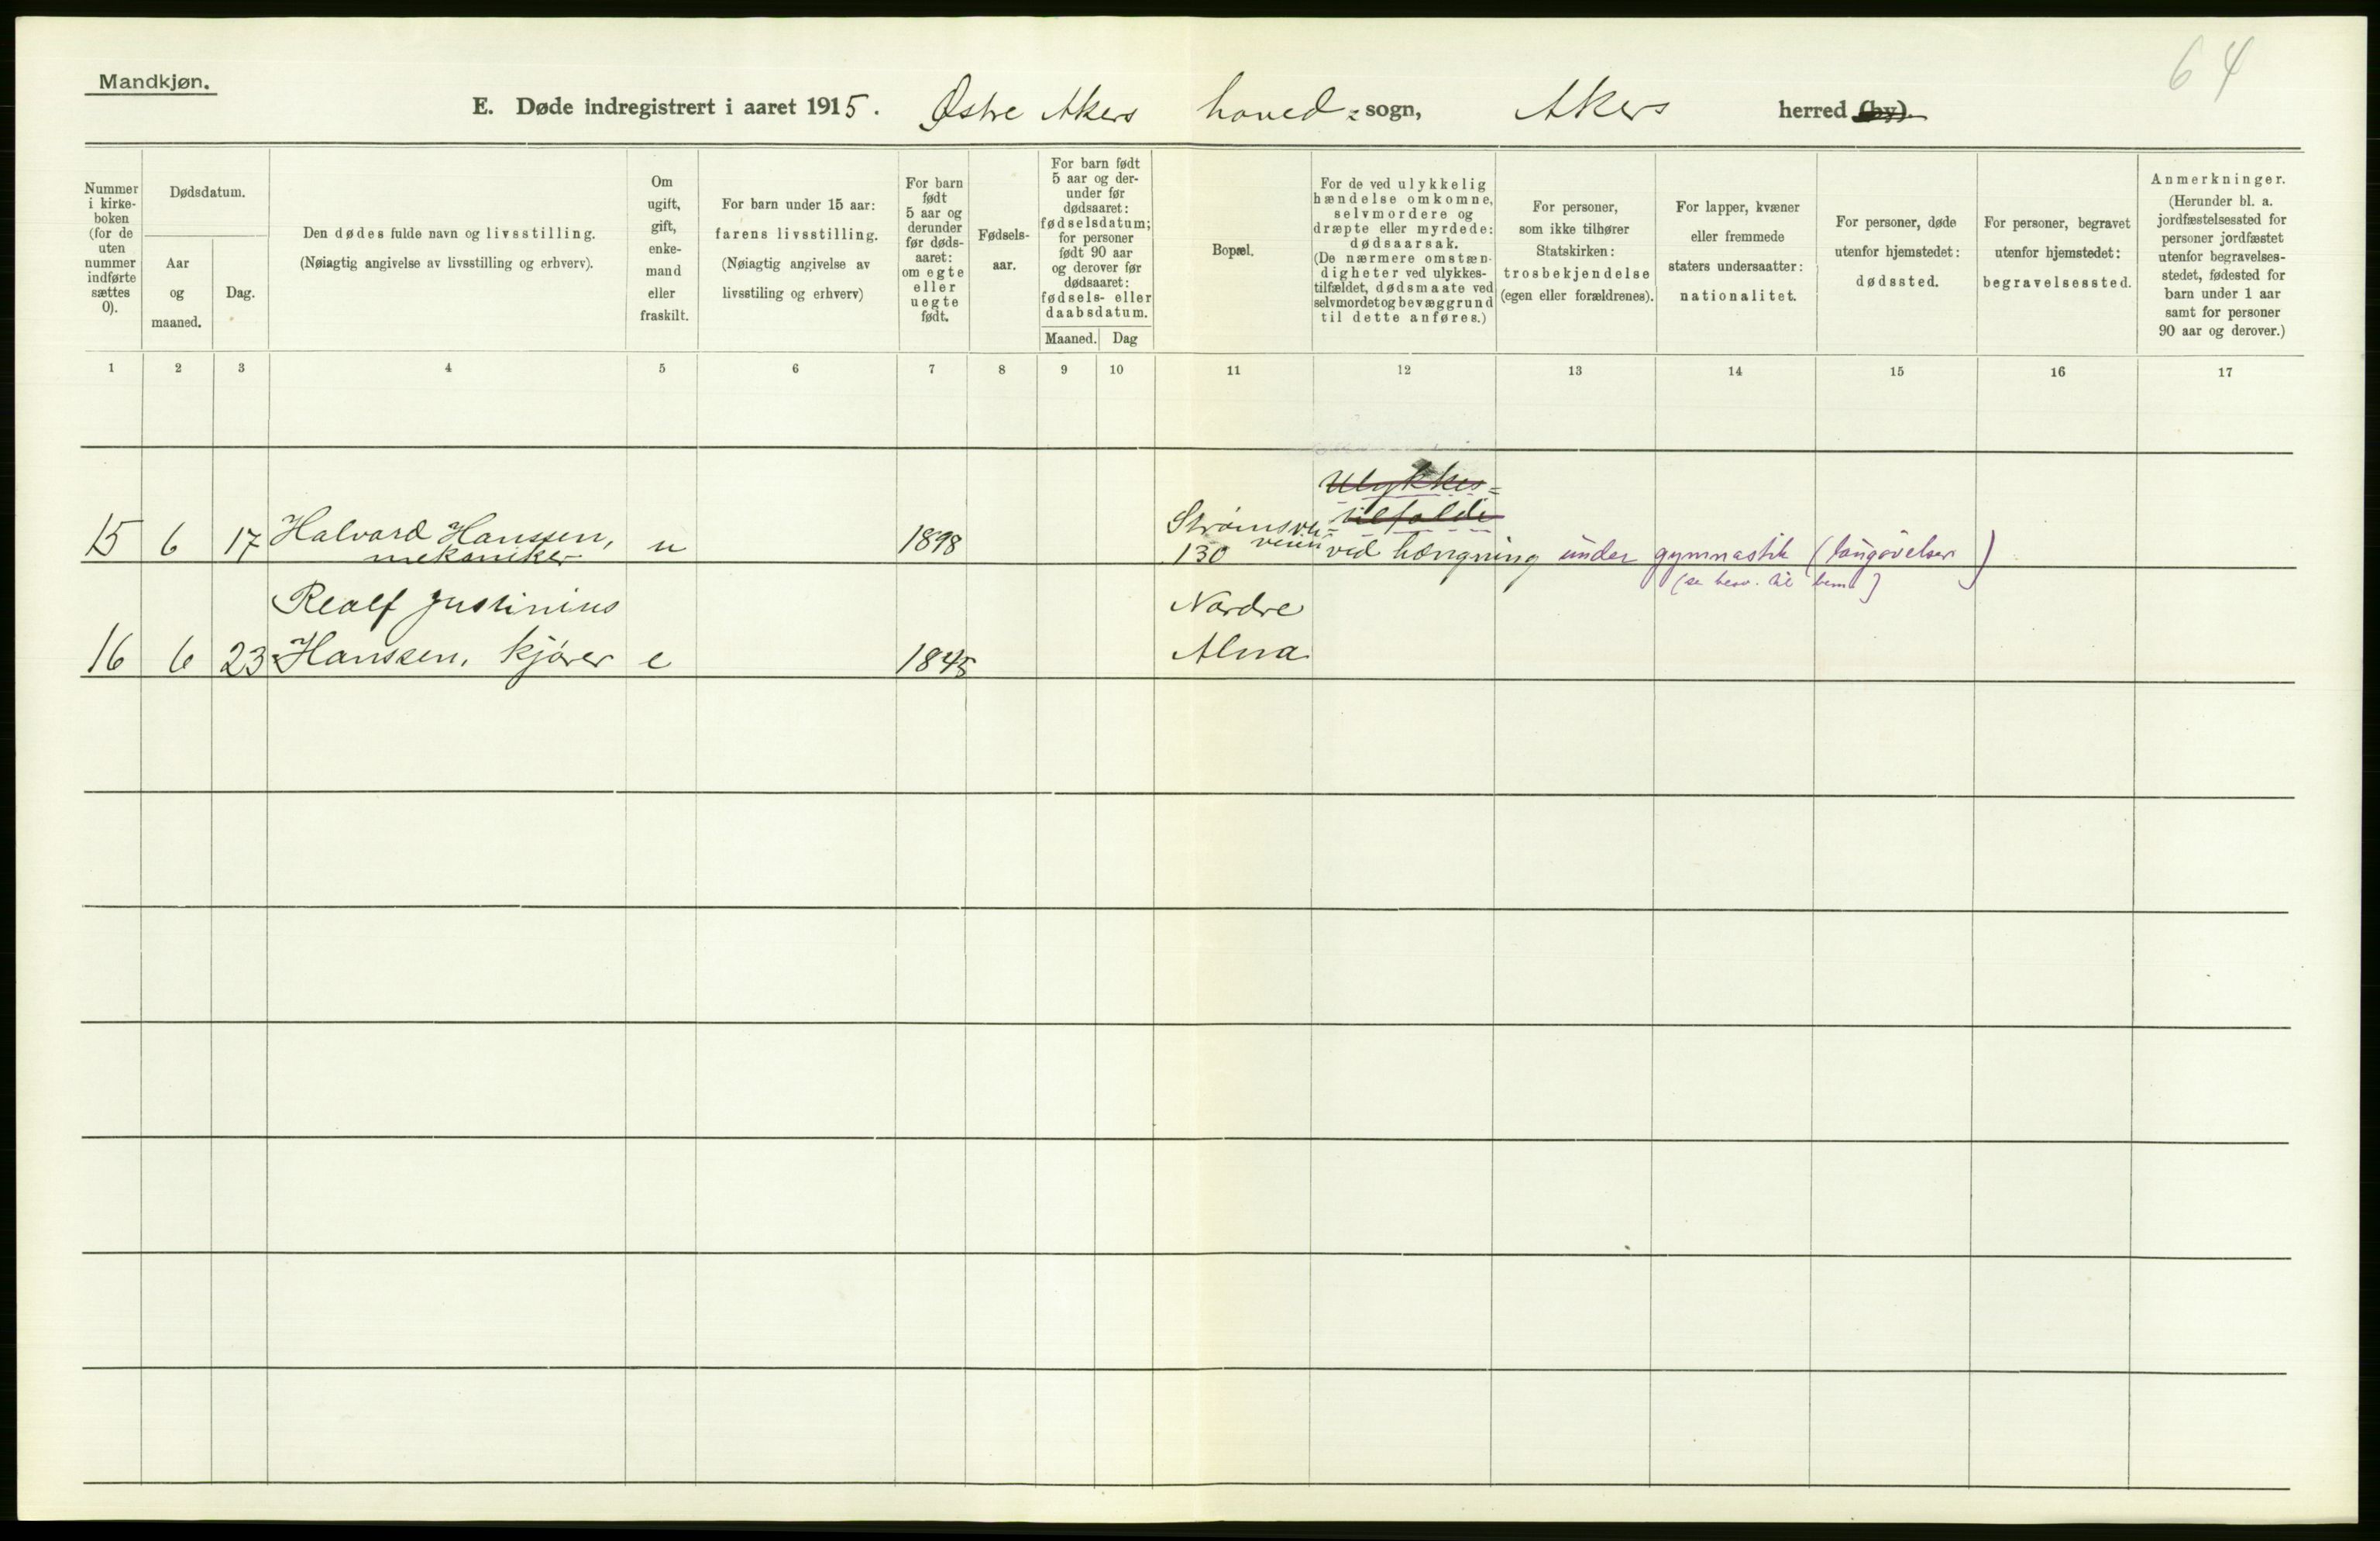 64
Mandkjøn.
E. Døde indregistrert i aaret 1915. Østre Akers hoved-sogn, Akers herred (by).
Nummer i kirke-boken (for de uten nummer indførte sættes 0).
Dødsdatum.
Aar og maaned.
Dag.
Den dødes fulde navn og livsstilling.
(Nøiagtig angivelse av livsstilling og erhverv).
Om ugift, gift, enke-mand eller fraskilt.
For barn under 15 aar:
farens livsstilling.
(Nøiagtig angivelse av
livsstiling og erhverv)
For barn født 5 aar og derunder før døds-aaret: om egte eller uegte født.
Fødsels-aar.
For barn født 5 aar og der-under før dødsaaret: fødselsdatum; for personer født 90 aar og derover før dødsaaret: fødsels- eller daabsdatum.
Maaned. Dag
Bopæl.
For de ved ulykkelig hændelse omkomne, selvmordere og dræpte eller myrdede: dødsaarsak.
(De nærmere omstæn-digheter ved ulykkes-tilfældet, dødsmaate ved selvmordet og bevæggrund til dette anføres.)
For personer, som ikke tilhører Statskirken: trosbekjendelse (egen eller forældrenes).
For lapper, kvæner eller fremmede staters undersaatter: nationalitet.
For personer, døde utenfor hjemstedet: dødssted.
For personer, begravet utenfor hjemstedet: begravelsessted.
Anmerkninger.
(Herunder bl. a. jordfæstelsessted for personer jordfæstet utenfor begravelses-stedet, fødested for barn under 1 aar samt for personer 90 aar og derover.)
1 2 3 4 5 6 7 8 9 10 11 12 13 14 15 16 17
Ulykkes-
tilfelde
15 6 17 Halvard Hanssen, u 1898 Strømsvei-
veien
mekaniker 130 ved hængning under gymnastik (taugøvelser)
Realf Justinius Nordre
16 6 23 Hanssen, kjører e 1845 Alna